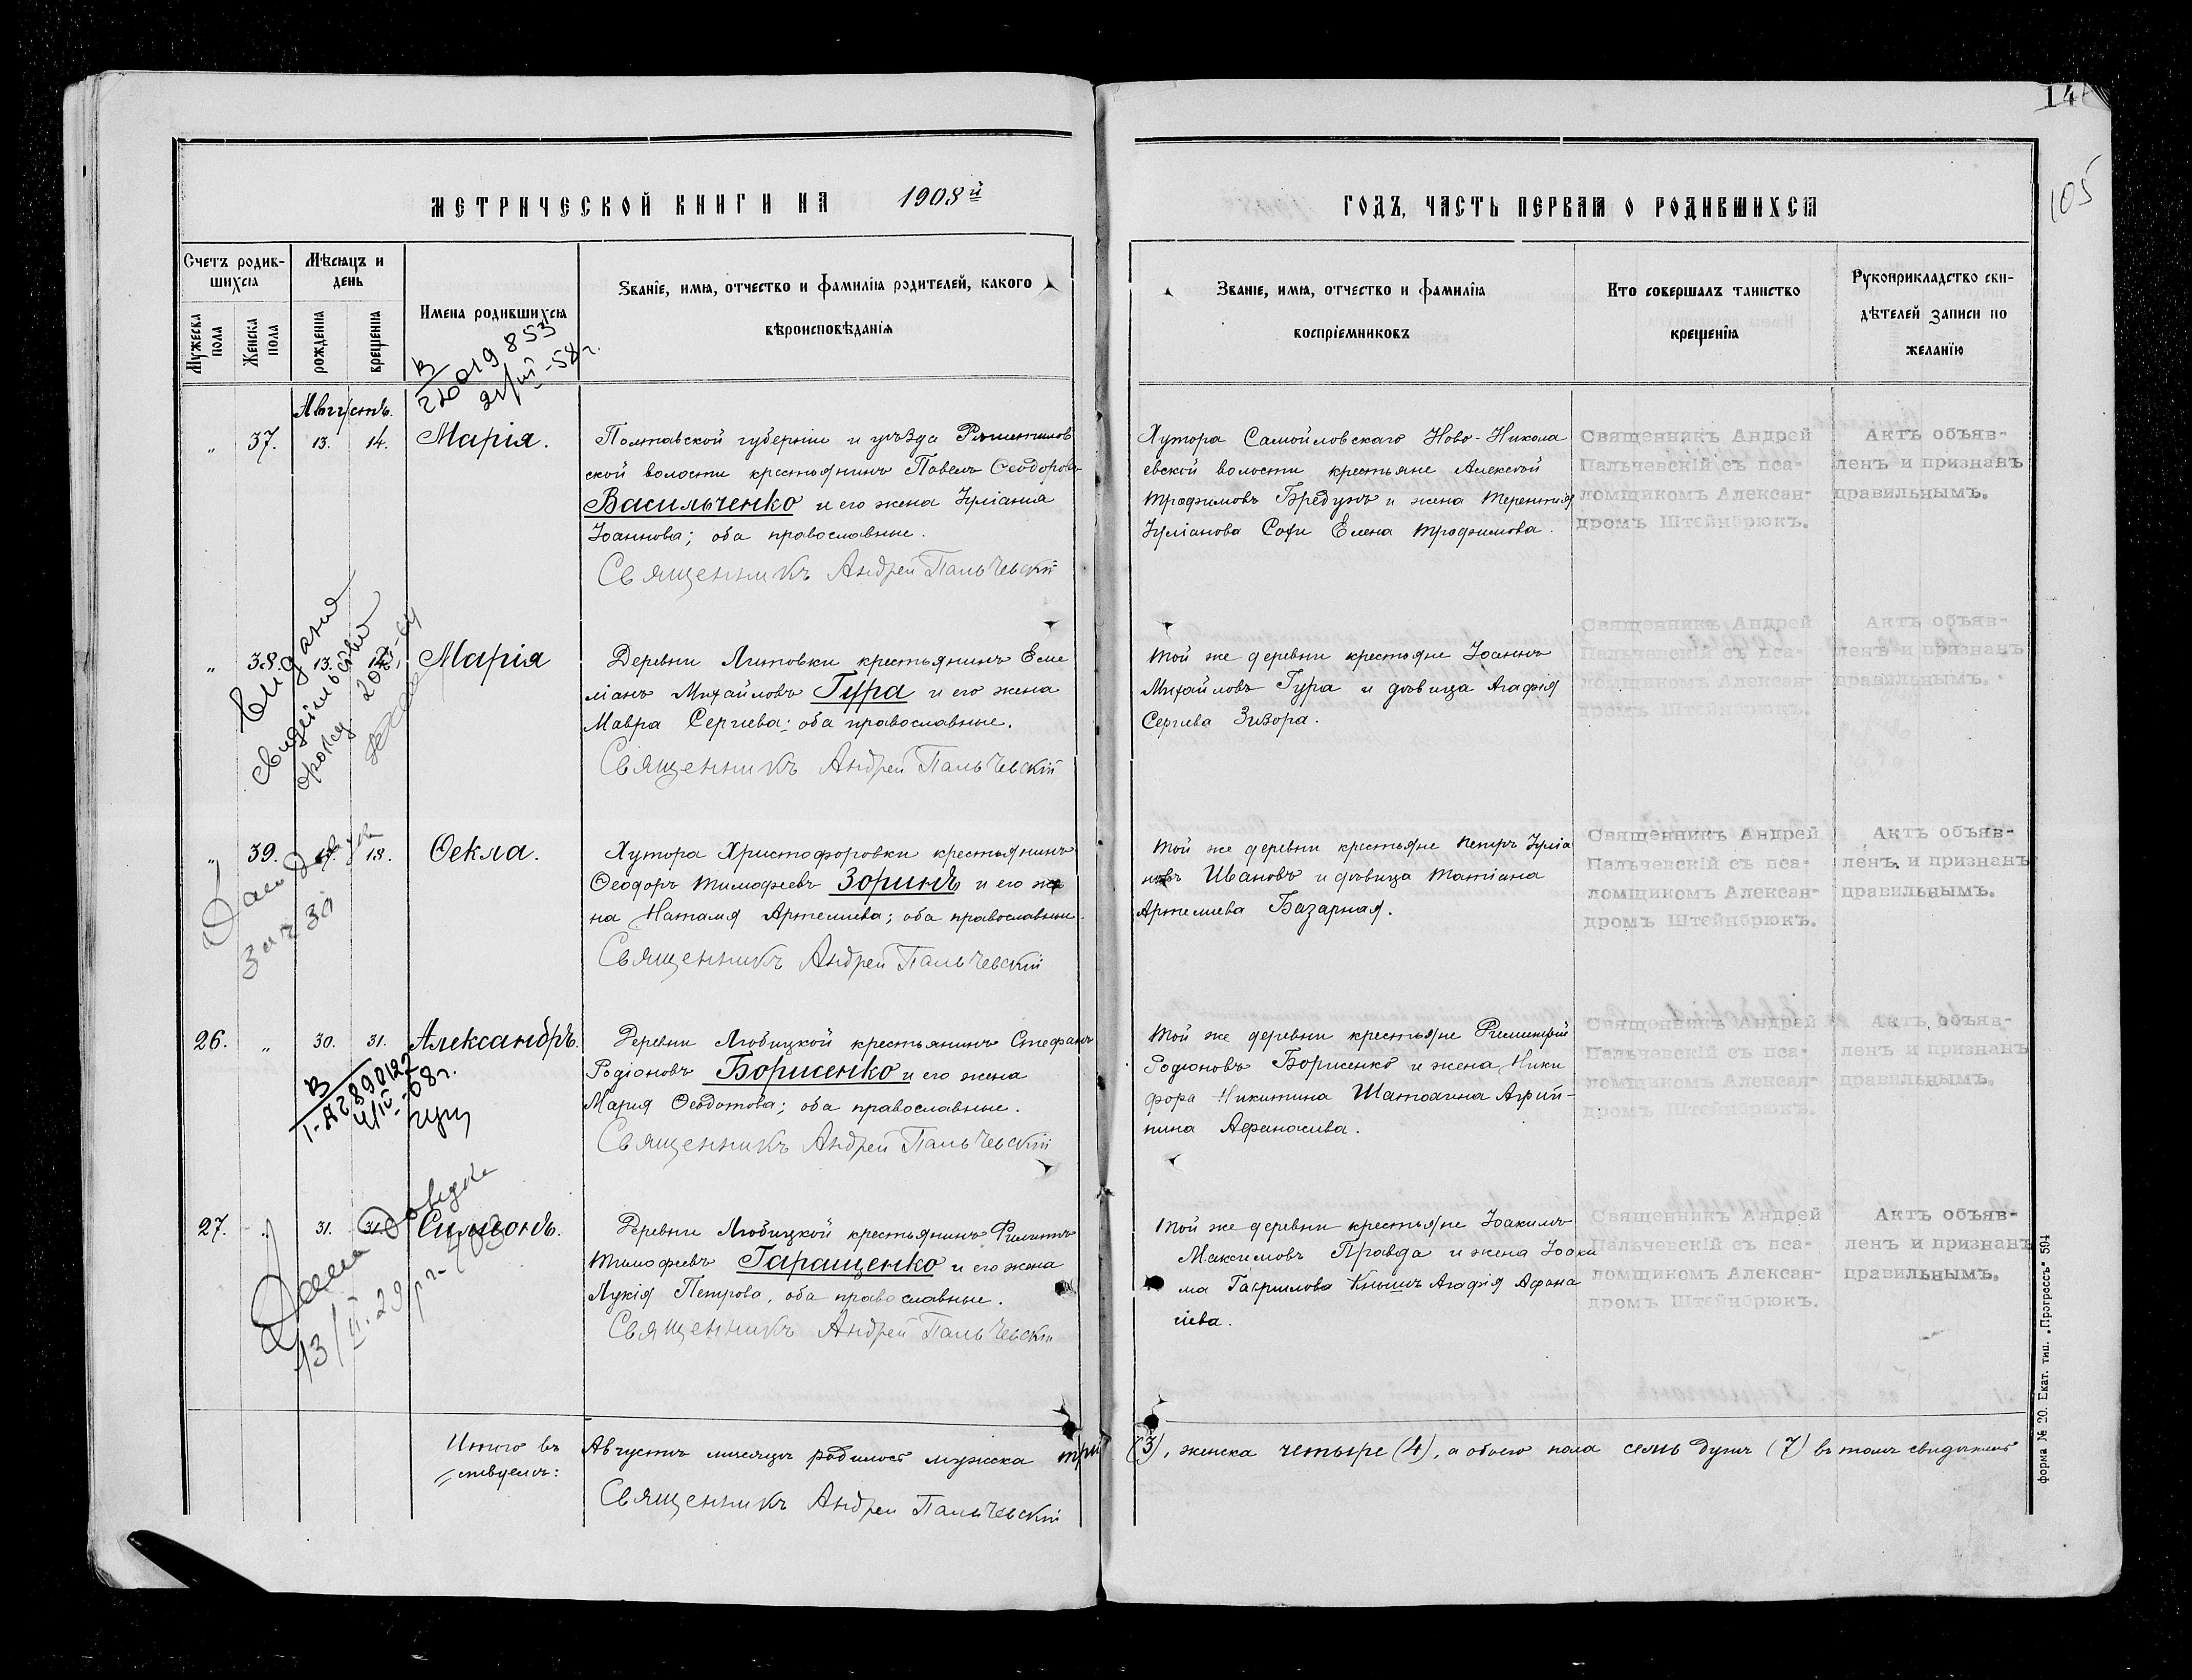 14
105
МЕТРИЧЕСКОЙ КНИГИ НА 1908й
ГОДЪ, ЧАСТЬ ПЕРВАЯ О РОДИВШИХСЯ
Счетъ родив-
шихся
Мужеска пола
Женска пола
Мѣсяцъ и
день
рожденія
крещенія
Имена родившихся
Званіе, имя, отчество и фамилія родителей, какого
вѣроисповѣданія
Званіе, имя, отчество и фамилія
воспріемниковъ
Кто совершалъ таинство
крещенія
Рукоприкладство сви-
дѣтелей записи по
желанію
019853
21/VII-58 г.
Августъ.
„ 37. 13. 14. Марія.
Полтавской губерніи и уѣзда Рѣшетилов
ской волости крестьянинъ Павелъ Ѳеодоровъ
Васильченко и его жена Іуліанія
Іоаннова; оба православные.
Священникъ Андрей Пальчевскій
Хутора Самойловскаго Ново-Никола
евской волости крестьяне Алексѣй
Трофимовъ Бредунъ и жена Терентія
Іуліанова Софи Елена Трофимова.
Священникъ Андрей
Пальчевскій съ пса-
ломщикомъ Алексан-
дромъ Штейнбрюкъ.
Актъ объяв-
ленъ и признанъ
правильнымъ.
„ 38. 13. 14. Марія
Деревни Литовки крестьянинъ Еме
ліанъ Михайловъ Гура и его жена
Мавра Сергіева; оба православные.
Священникъ Андрей Пальчевскій
Той же деревни крестьяне Іоаннъ
Михайловъ Гура и дѣвица Агафія
Сергіева Зизора.
Священникъ Андрей
Пальчевскій съ пса-
ломщикомъ Алексан-
дромъ Штейнбрюкъ.
Актъ объяв-
ленъ и признанъ
правильнымъ.
„ 39. 18. Ѳекла.
Хутора Христофоровки крестьянинъ
Ѳеодоръ Тимофеевъ Зоринъ и его же
на Наталія Артеміева; оба православные.
Священникъ Андрей Пальчевскій
Той же деревни крестьяне Петръ Іуліа
новъ Ивановъ и дѣвица Татіана
Артеміева Базарная.
Священникъ Андрей
Пальчевскій съ пса-
ломщикомъ Алексан-
дромъ Штейнбрюкъ.
Актъ объяв-
ленъ и признанъ
правильнымъ.
26. „ 30. 31. Александръ.
Деревни Любицкой крестьянинъ Стефанъ
Родіоновъ Борисенко и его жена
Марія Ѳеодотова; оба православные.
Священникъ Андрей Пальчевскій
Той же деревни крестьяне
Родіоновъ Борисенко и жена Ники
фора Никитина Шатохина Агрип-
пина Афанасіева.
Священникъ Андрей
Пальчевскій съ пса-
ломщикомъ Алексан-
дромъ Штейнбрюкъ.
Актъ объяв-
ленъ и признанъ
правильнымъ.
27. „ 31. 31. Симеонъ.
Деревни Любицкой крестьянинъ Филиппъ
Тимофеевъ Гаращенко и его жена
Лукія Петрова, оба православные.
Священникъ Андрей Пальчевскій
Той же деревни крестьяне Іоакимъ
Максимовъ Правда и жена Іоаки
ма Гавриилова Книшъ Агафія Афана
сіева.
Священникъ Андрей
Пальчевскій съ пса-
ломщикомъ Алексан-
дромъ Штейнбрюкъ.
Актъ объяв-
ленъ и признанъ
правильнымъ.
Итого въ Августѣ мѣсяцѣ родилось мужска три (3), женска четыре (4), а обоего пола семь душъ (7) въ томъ свидѣтель
ствуемъ:
Священникъ Андрей Пальчевскій
форма № 20. Екат. тип. „Прогрессъ" 594